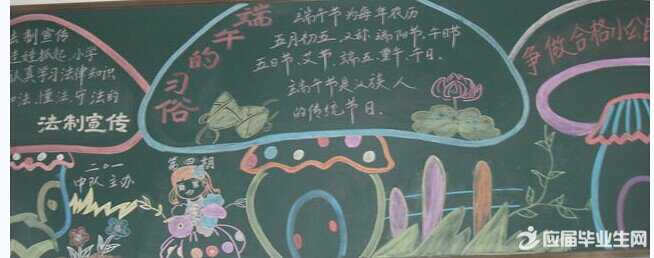 法制宣传
娃娃抓起,小学
认真学习法律知识
法,懂法,守法的
法制宣传
二〇一
中队主办
第四期
端午的习俗
端午节为每年农历
五月初五,又称端阳节、午日节
五日节、艾节、端五、重午、午日、
端午节是汉族人
的传统节日。
争做合格小公
应届毕业生网